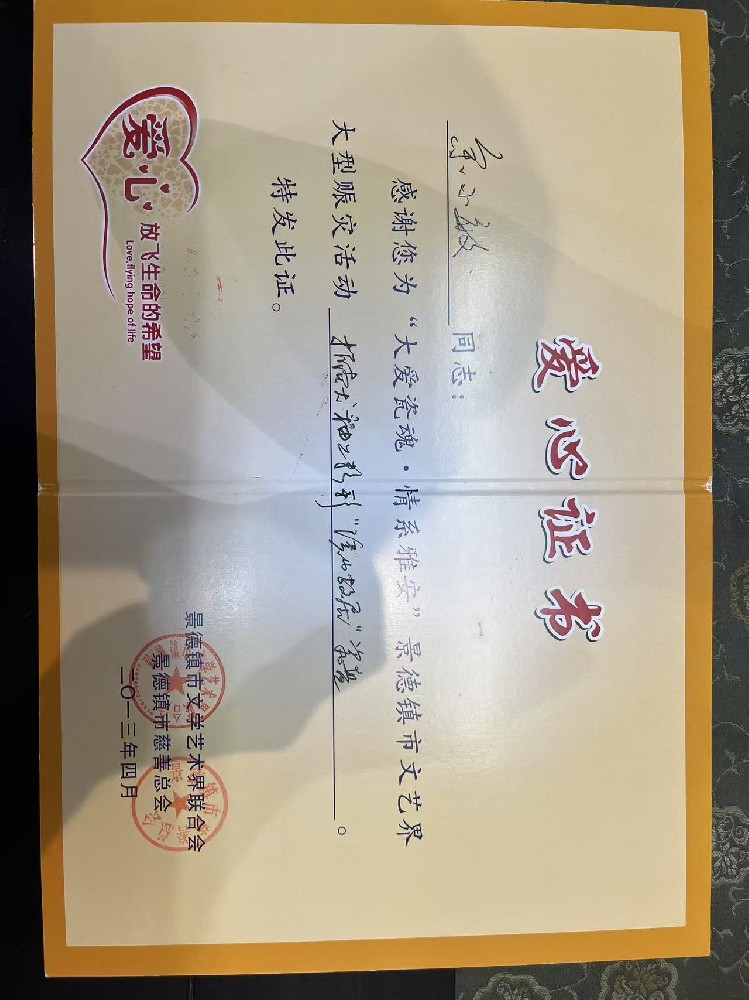 爱心证书
余小敏 同志：
感谢您为“大爱瓷魂·情系雅安”景德镇市文艺界
大型赈灾活动 捐 。
特发此证。
爱心
放飞生命的希望
Love,flying hope of life
景德镇市文学艺术界联合会
景德镇市慈善总会
二〇一三年四月